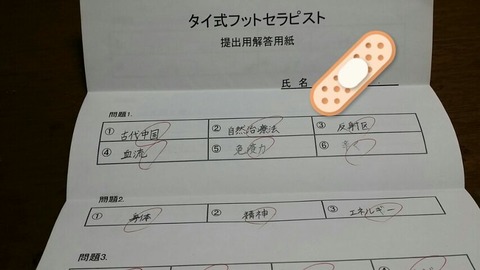 タイ式フットセラピスト
提出用解答用紙
氏 名
問題1.
① 古代中国 ② 自然治療法 ③ 反射区
④ 血流 ⑤ 免疫力 ⑥
問題2.
① 身体 ② 精神 ③ エネルギー
問題3.